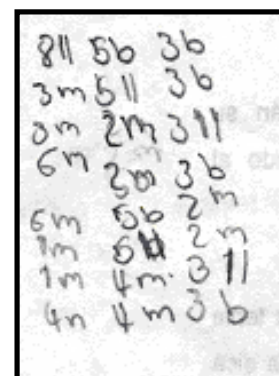 8ll 5b 3b
3m 5ll 3b
3m 2m 3ll
6m 2m 3b
6m 5b 2m
1m 5ll 2m
1m 4m 3ll
4m 4m 3b